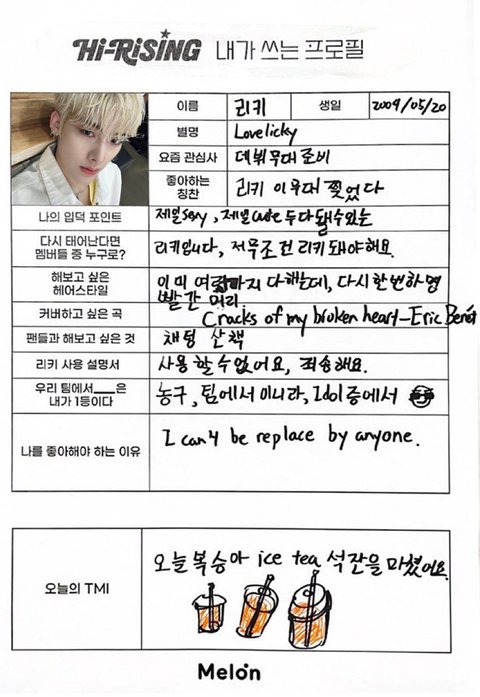 Hi-RiSiNG 내가 쓰는 프로필
이름 리키 생일 2004/05/20
별명 Lovelicky
요즘 관심사 데뷔무대 준비
좋아하는 칭찬 리키 이무대 찢었다
나의 입덕 포인트 제일 sexy, 제일 cute 두다 될수있는
다시 태어난다면 멤버들 중 누구로? 리키입니다, 저무조건 리키 돼야해요.
해보고 싶은 헤어스타일 이미 여러까지 다해는데, 다시 한번하명
빨간 머리
커버하고 싶은 곡 Cracks of my broken heart-Eric Benét
팬들과 해보고 싶은 것 채팅 산책
리키 사용 설명서 사용 할수없어요, 죄송해요.
우리 팀에서___은 내가 1등이다 농구, 팀에서 아니라, Idol 중에서
나를 좋아해야 하는 이유 I can't be replace by anyone.
오늘의 TMI 오늘 복숭아 ice tea 석잔을 마셨어요.
Melon